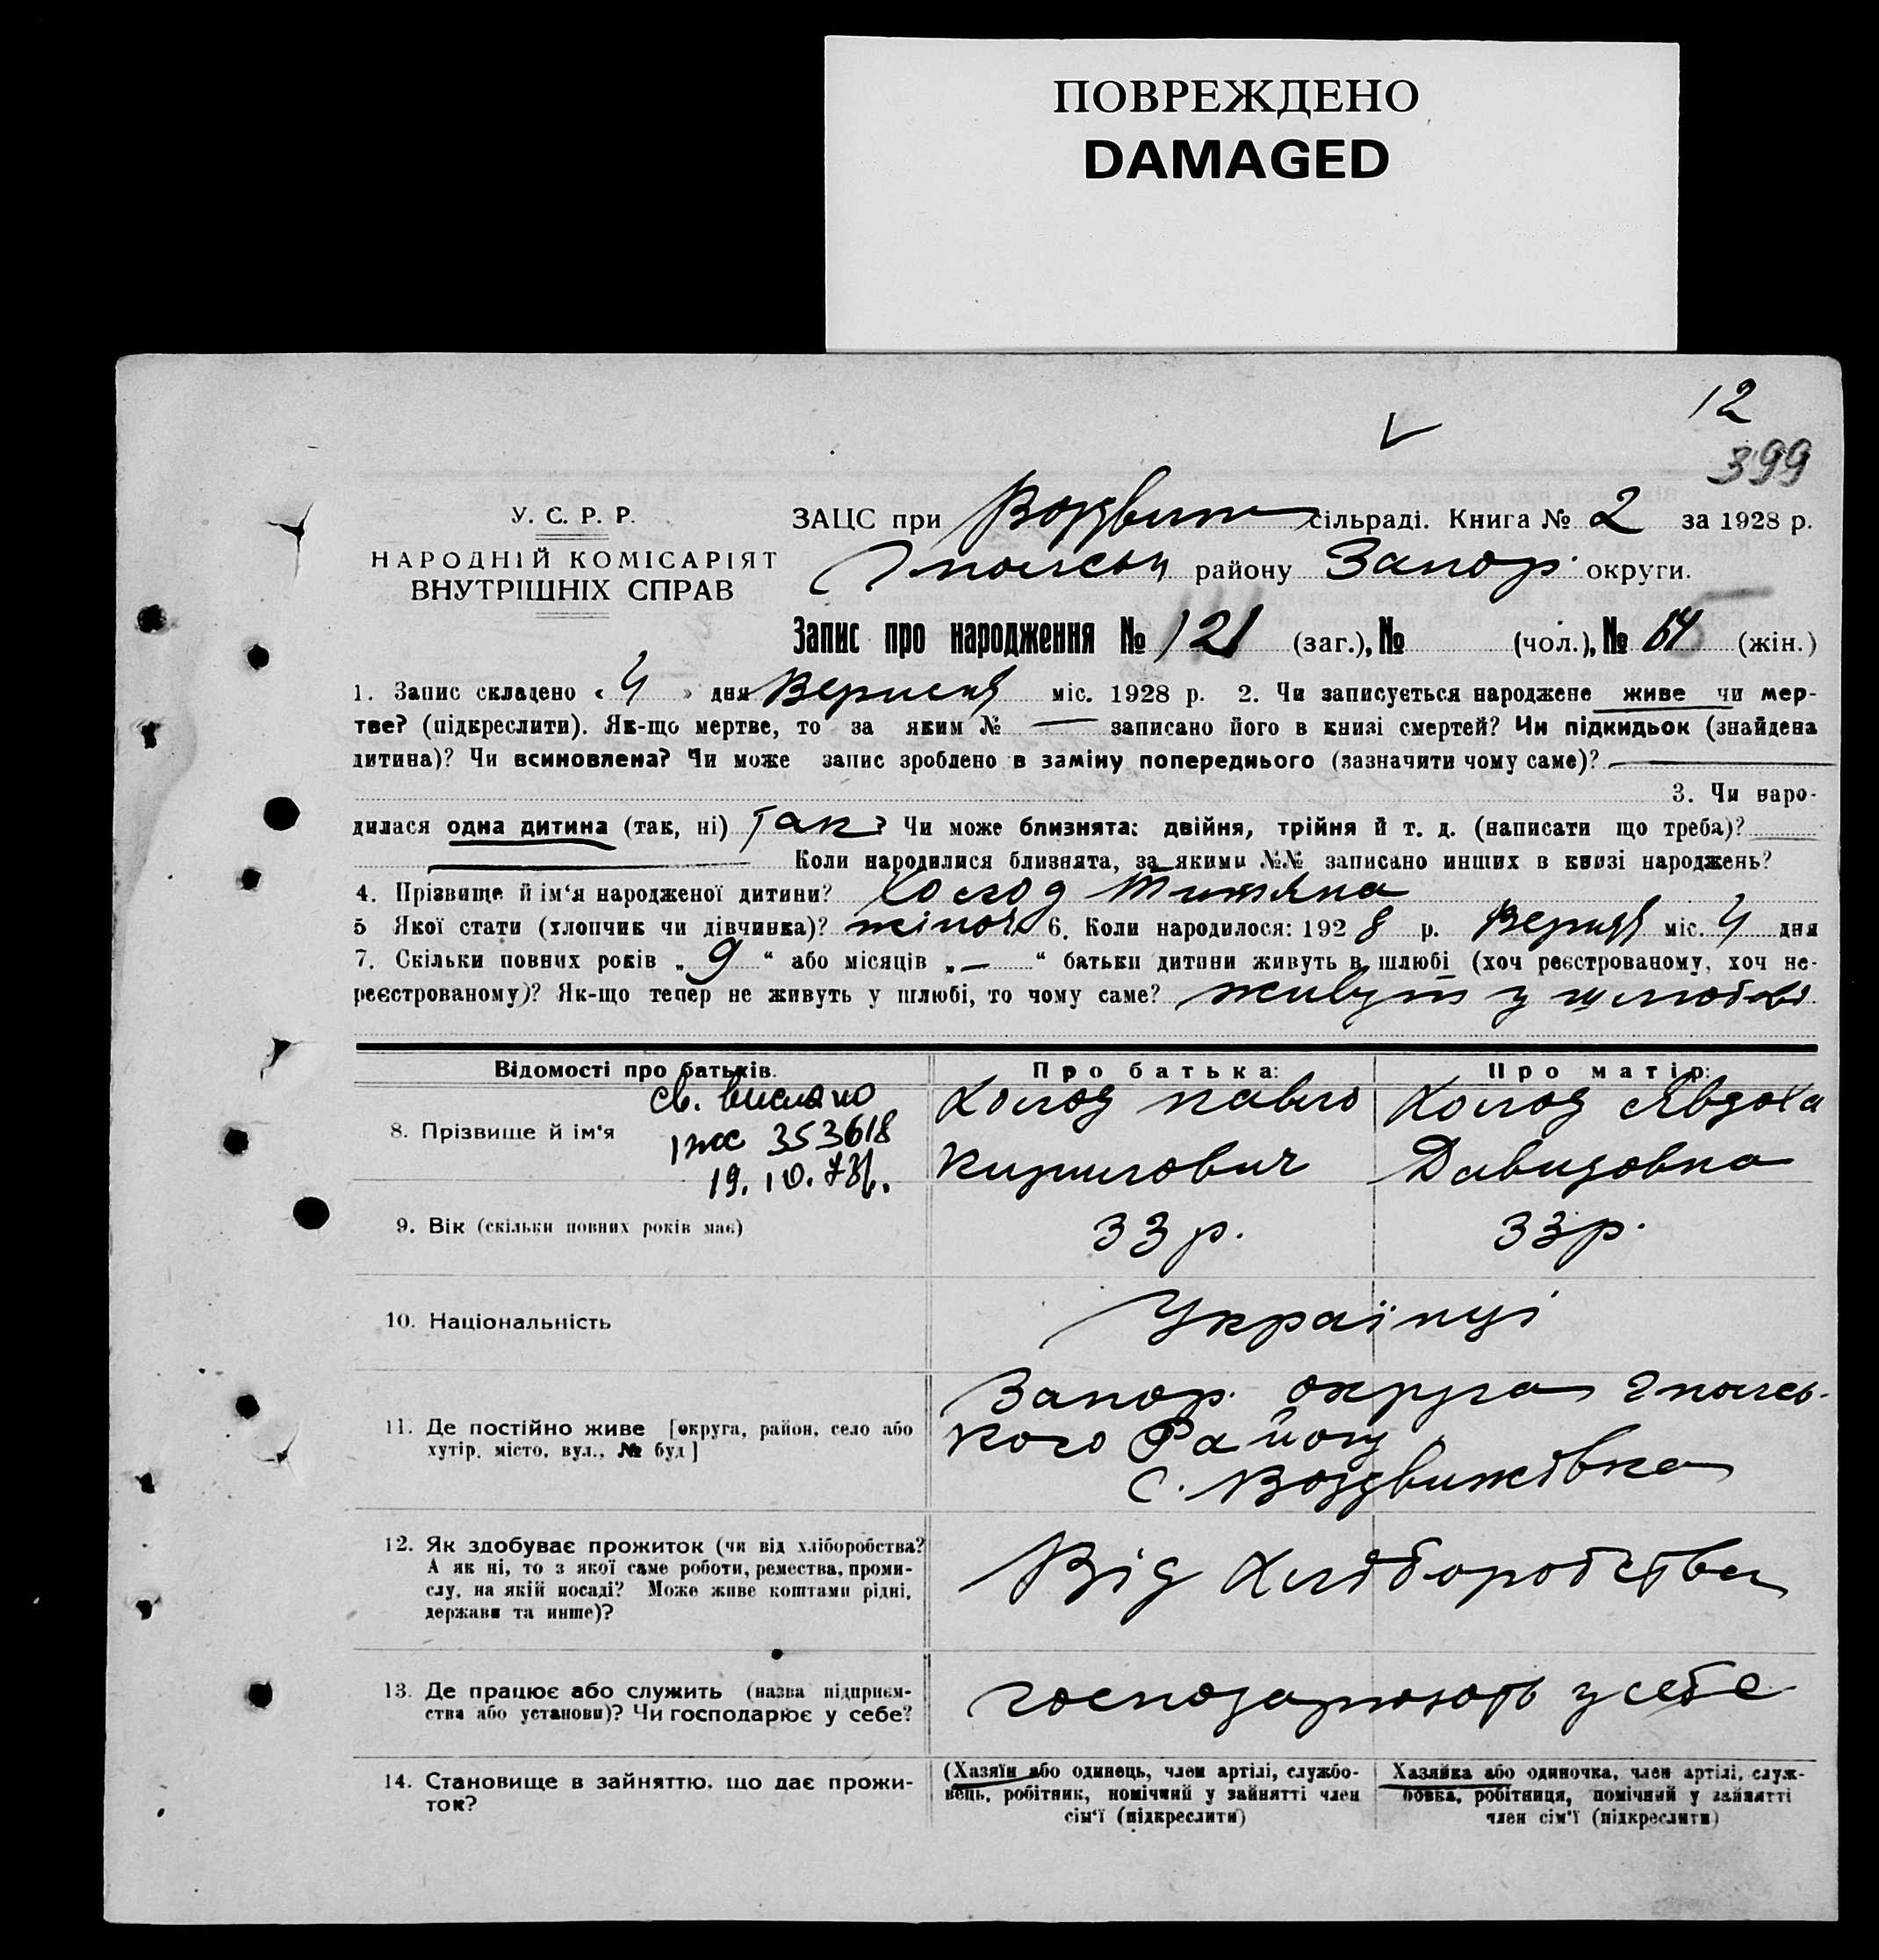 ПОВРЕЖДЕНО
DAMAGED
12
399
У. С. Р. Р.
НАРОДНІЙ КОМІСАРІЯТ
ВНУТРІШНІХ СПРАВ
ЗАЦС при Воздвиж сільраді. Книга № 2 за 1928 р.
району Запор. округи.
Запис про народження № 121 (заг.), № (чол.), № 64 (жін.)
1. Запис складено « 4 » дня Вересня міс. 1928 р. 2. Чи записується народжене живе чи мер-
тве? (підкреслити). Як-що мертве, то за яким № — записано його в книзі смертей? Чи підкидьок (знайдена
дитина)? Чи всиновлена? Чи може запис зроблено в заміну попереднього (зазначити чому саме)? —
3. Чи наро-
дилася одна дитина (так, ні) Так? Чи може близнята: двійня, трійня й т. д. (написати що треба)?
— Коли народилися близнята, за якими №№ записано инших в книзі народжень?
4. Прізвище й ім‘я народженої дитини? Холод Титяна
5 Якої стати (хлопчик чи дівчинка)? жіноч 6. Коли народилося: 1928 р. міс. 4 дня
7. Скільки повних років „ 9 “ або місяців „ — “ батьки дитини живуть в шлюбі (хоч реєстрованому, хоч не-
реєстрованому)? Як-що тепер не живуть у шлюбі, то чому саме? живуть у шлюбові
Відомості про батьків. Про батька: Про матір:
св. вислано
8. Прізвище й ім‘я Холод Павло Холод Явдоха
1 жс 353618
19.10.73г. Кирилович Давидовна
9. Вік (скільки повних років має) 33 р. 33 р.
10. Національність Українці
11. Де постійно живе [округа, район, село або
хутір, місто, вул., № буд]
Запор. округа Гполсь-
кого Району
с. Воздвижівка
12. Як здобуває прожиток (чи від хліборобства?
А як ні, то з якої саме роботи, ремества, проми-
слу, на якій посаді? Може живе коштами рідні,
держави та инше)?
Від Хліборобства
13. Де працює або служить (назва підприєм-
ства або установи)? Чи господарює у себе?
господарюють у себе
14. Становище в зайняттю, що дає прожи-
ток?
(Хазяїн або одинець, член артілі, службо-
вець, робітник, помічний у зайнятті член
сім‘ї (підкреслити)
Хазяйка або одиночка, член артілі, служ-
бовка, робітниця, помічний у зайнятті
член сім‘ї (підкреслити)